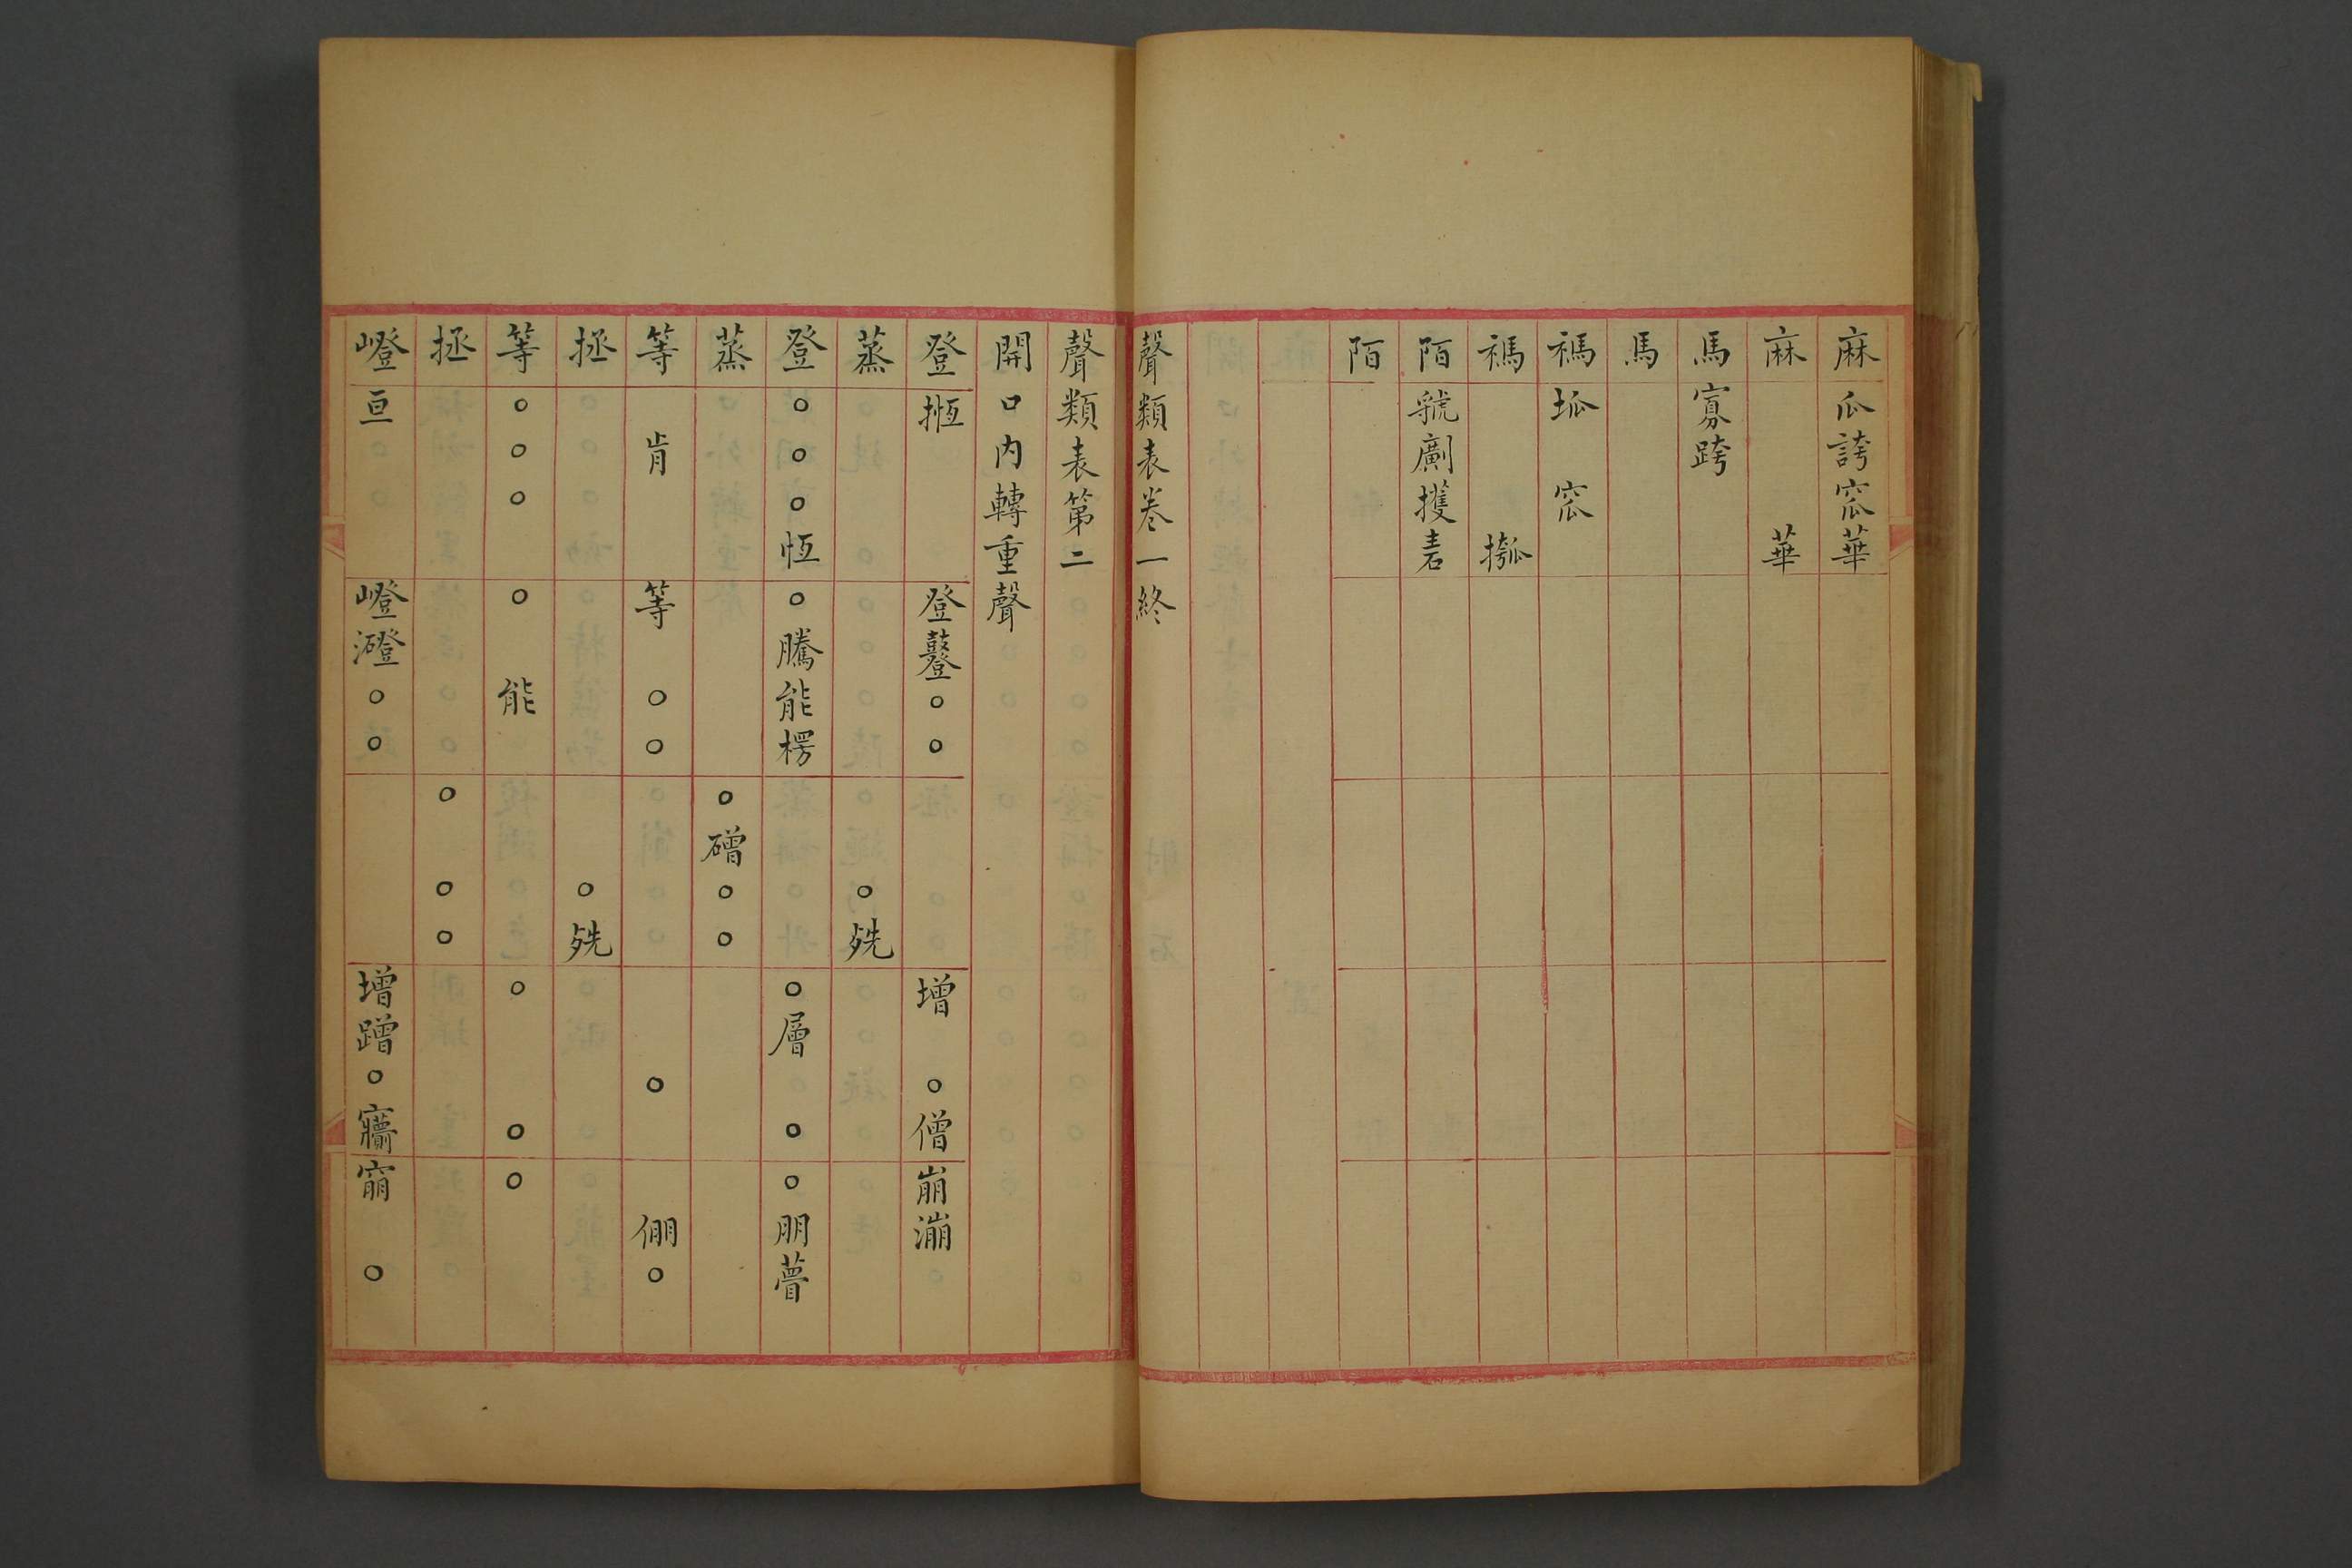 麻 瓜誇窊華
麻 華
馬 寡跨
馬
禡 坬 窊
禡 摦
陌 虢㓰擭砉
陌
聲類表卷一終
聲類表第二
開口内轉重聲
登 搄 登鼟○○ 增○僧 崩漰
蒸 ○殑
登 ○○○恆 ○騰能楞 ○層○ ○朋瞢
蒸 ○磳○○
等 肯 等○○ ○ 倗○
拯 ○殑
等 ○○○ ○能 ○○ ○
拯 ○○○
嶝 亘 嶝㲪○○ 增蹭○ 堋○